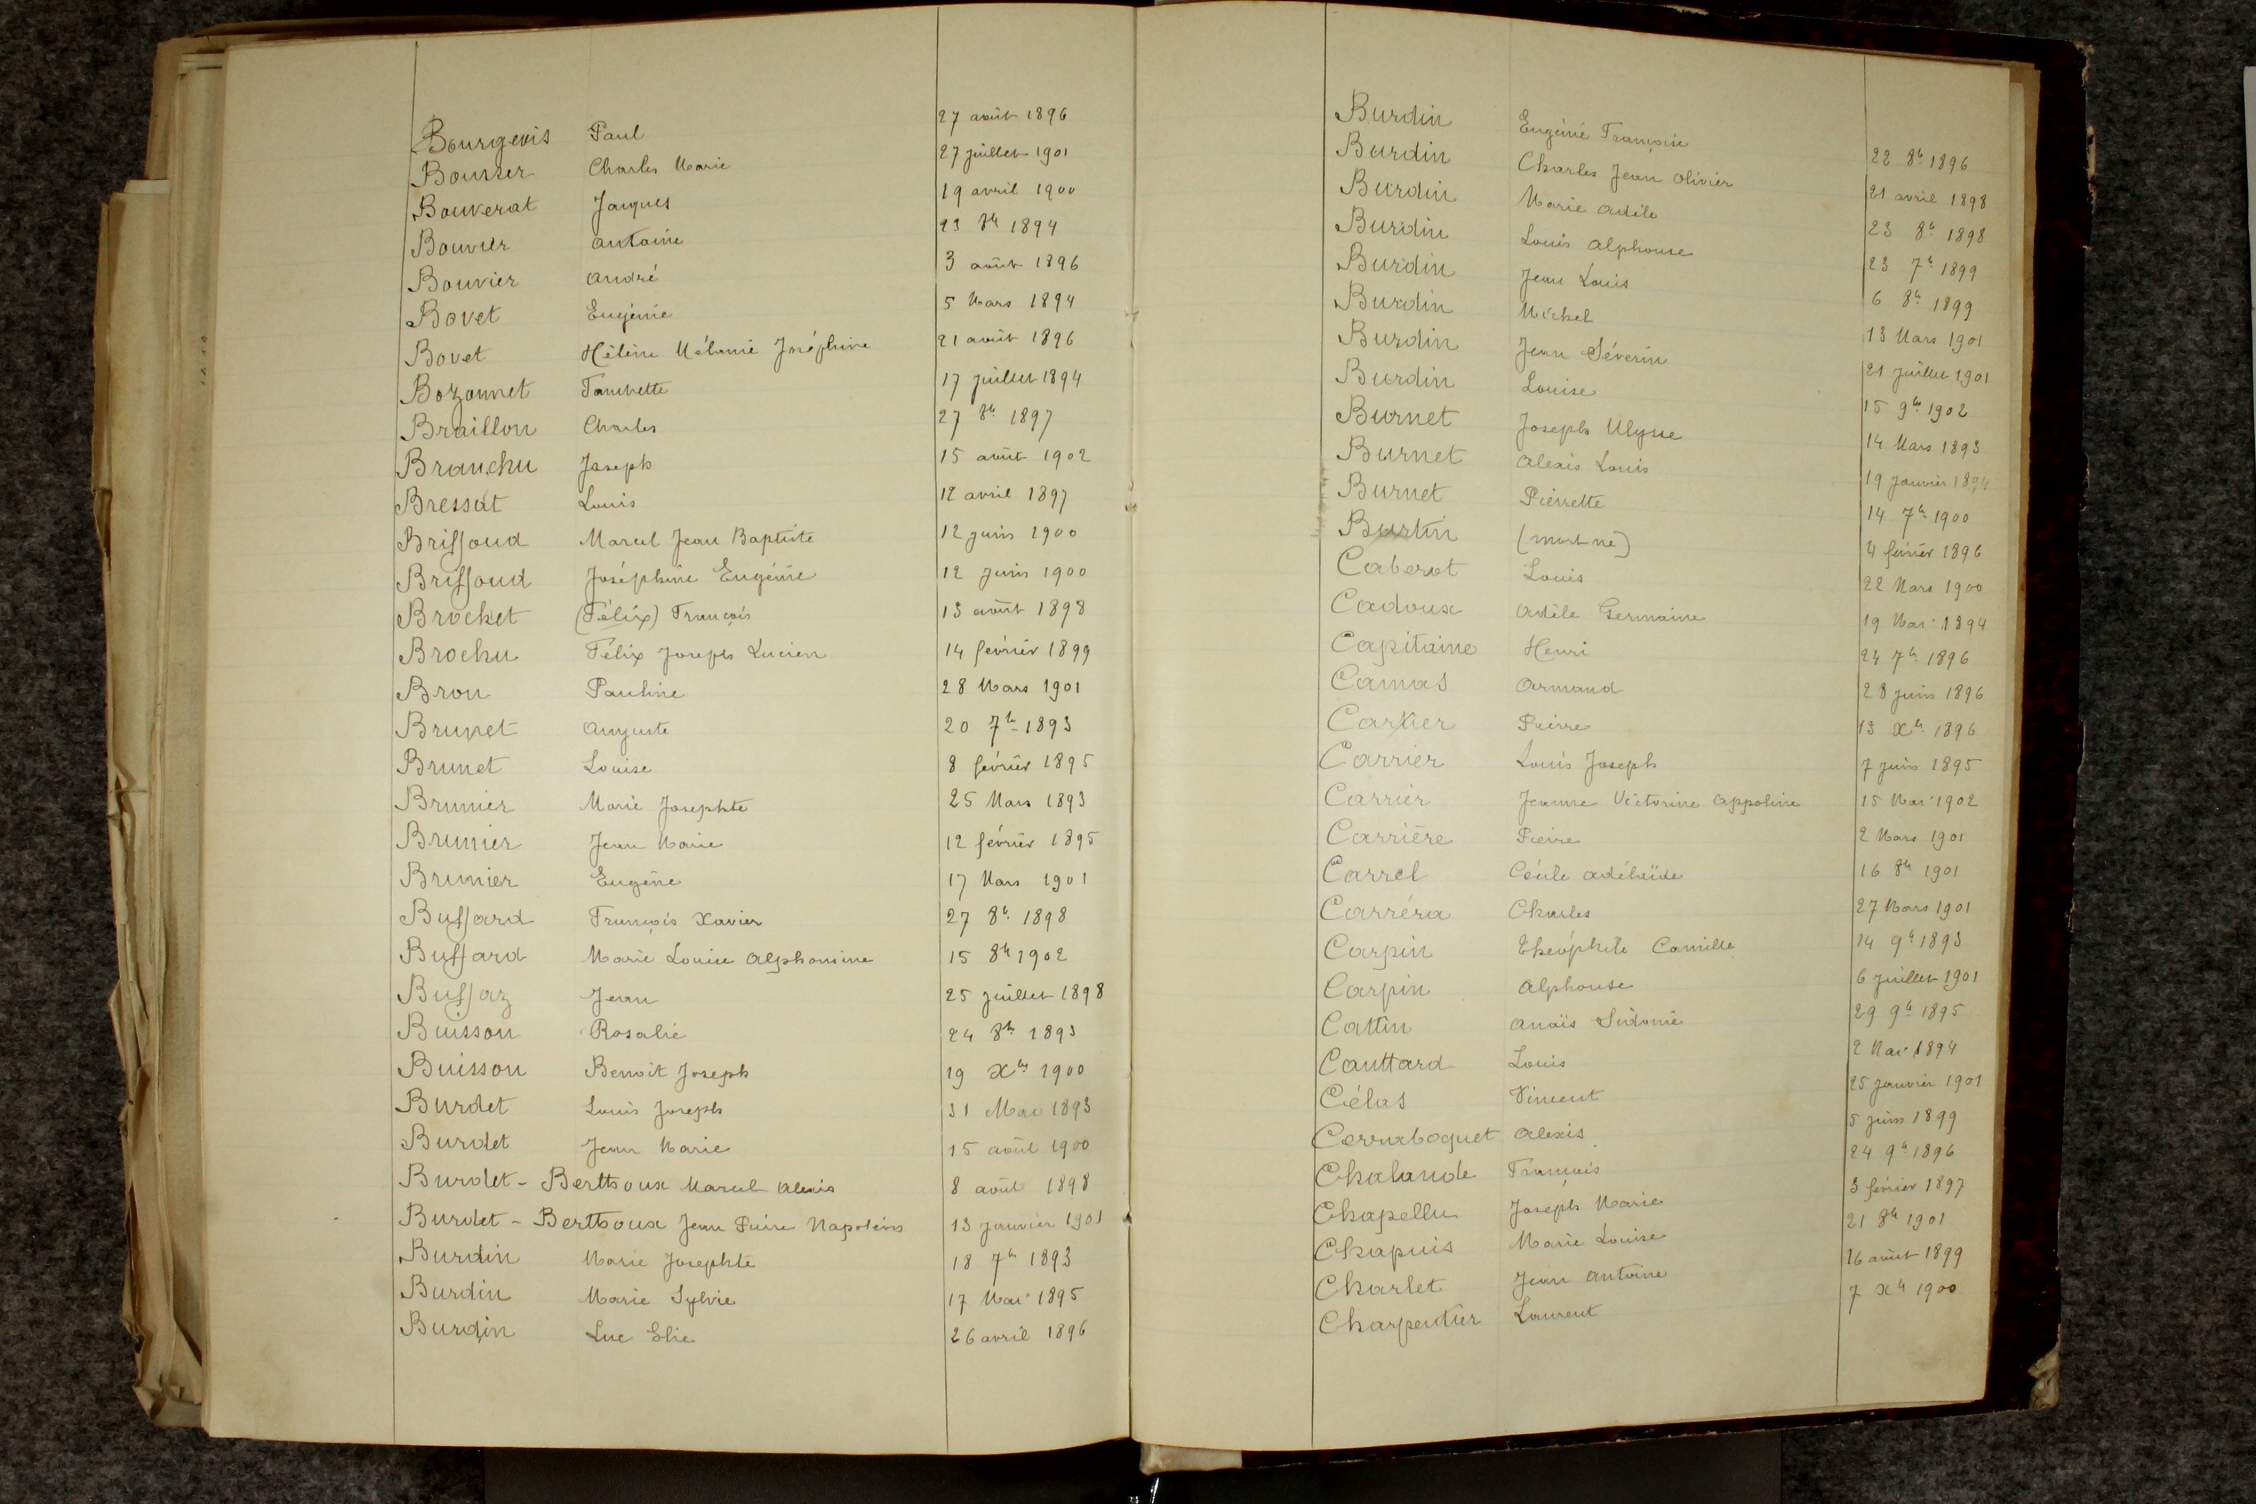 Bourgeois Paul 27 août 1896
Bousser Charles Marie 27 juillet 1901
Bouverat Jacques 19 avril 1900
Bouvier Antoine 23 8bre 1894
Bouvier André 3 août 1896
Bovet Eugénie 5 Mars 1894
Bovet Hélène Mélanie Joséphine 21 août 1896
Bozonnet Fanchette 17 juillet 1894
Braillon Charles 27 8bre 1897
Branchu Joseph 15 août 1902
Bressat Louis 12 avril 1897
Briffoud Marcel Jean Baptiste 12 juin 1900
Briffoud Joséphine Eugénie 12 juin 1900
Brochet (Félix) François 13 août 1898
Brochu Félix Joseph Lucien 14 février 1899
Bron Pauline 28 Mars 1901
Brunet Auguste 20 7bre 1893
Brunet Louise 8 février 1895
Brunier Marie Josephte 25 Mars 1893
Brunier Jean Marie 12 février 1895
Brunier Eugène 17 Mars 1901
Buffard François Xavier 27 8bre 1898
Buffard Marie Louise Alphonsine 15 8bre 1902
Buffaz Jean 25 juillet 1898
Buisson Rosalie 24 8bre 1893
Buisson Benoit Joseph 19 Xbre 1900
Burdet Louis Joseph 31 Mai 1893
Burdet Jean Marie 15 août 1900
Burdet - Berthoux Marcel Alexis 8 août 1898
Burdet - Berthoux Jean Pierre Napoléon 13 janvier 1901
Burdin Marie Josephte 18 7bre 1893
Burdin Marie Sylvie 17 Mai 1895
Burdin Luc Elie 26 avril 1896
Burdin Eugénie Françoise 22 8bre 1896
Burdin Charles Jean Olivier 21 avril 1898
Burdin Marie Adèle 23 8bre 1898
Burdin Louis Alphonse 23 7bre 1899
Burdin Jean Louis 6 8bre 1899
Burdin Michel 13 Mars 1901
Burdin Jean Séverin 21 juillet 1901
Burdin Louise 15 9bre 1902
Burnet Joseph Ulysse 14 Mars 1893
Burnet Alexis Louis 19 janvier 1894
Burnet Pierrette 14 7bre 1900
Burtin (mort né) 4 février 1896
Caberot Louis 22 Mars 1900
Cadoux Adèle Germaine 19 Mai 1894
Capitaine Henri 24 7bre 1896
Camas Armand 28 juin 1896
Cartier Pierre 13 Xbre 1896
Carrier Louis Joseph 7 juin 1895
Carrier Jeanne Victorine Appoline 15 Mai 1902
Carrière Pierre 2 Mars 1901
Carrel Cécile Adélaïde 16 8bre 1901
Carréra Charles 27 Mars 1901
Carpin Théophile Camille 14 9bre 1893
Carpin Alphonse 6 juillet 1901
Cattin Anaïs Sidonie 29 9bre 1895
Cauttard Louis 2 Mai 1894
Célas Vincent 25 janvier 1901
Cerruboquet Alexis 5 juin 1899
Chalande François 24 9bre 1896
Chapellu Joseph Marie 3 février 1897
Chapuis Marie Louise 21 8bre 1901
Charlet Jean Antoine 16 août 1899
Charpentier Laurent 7 Xbre 1900